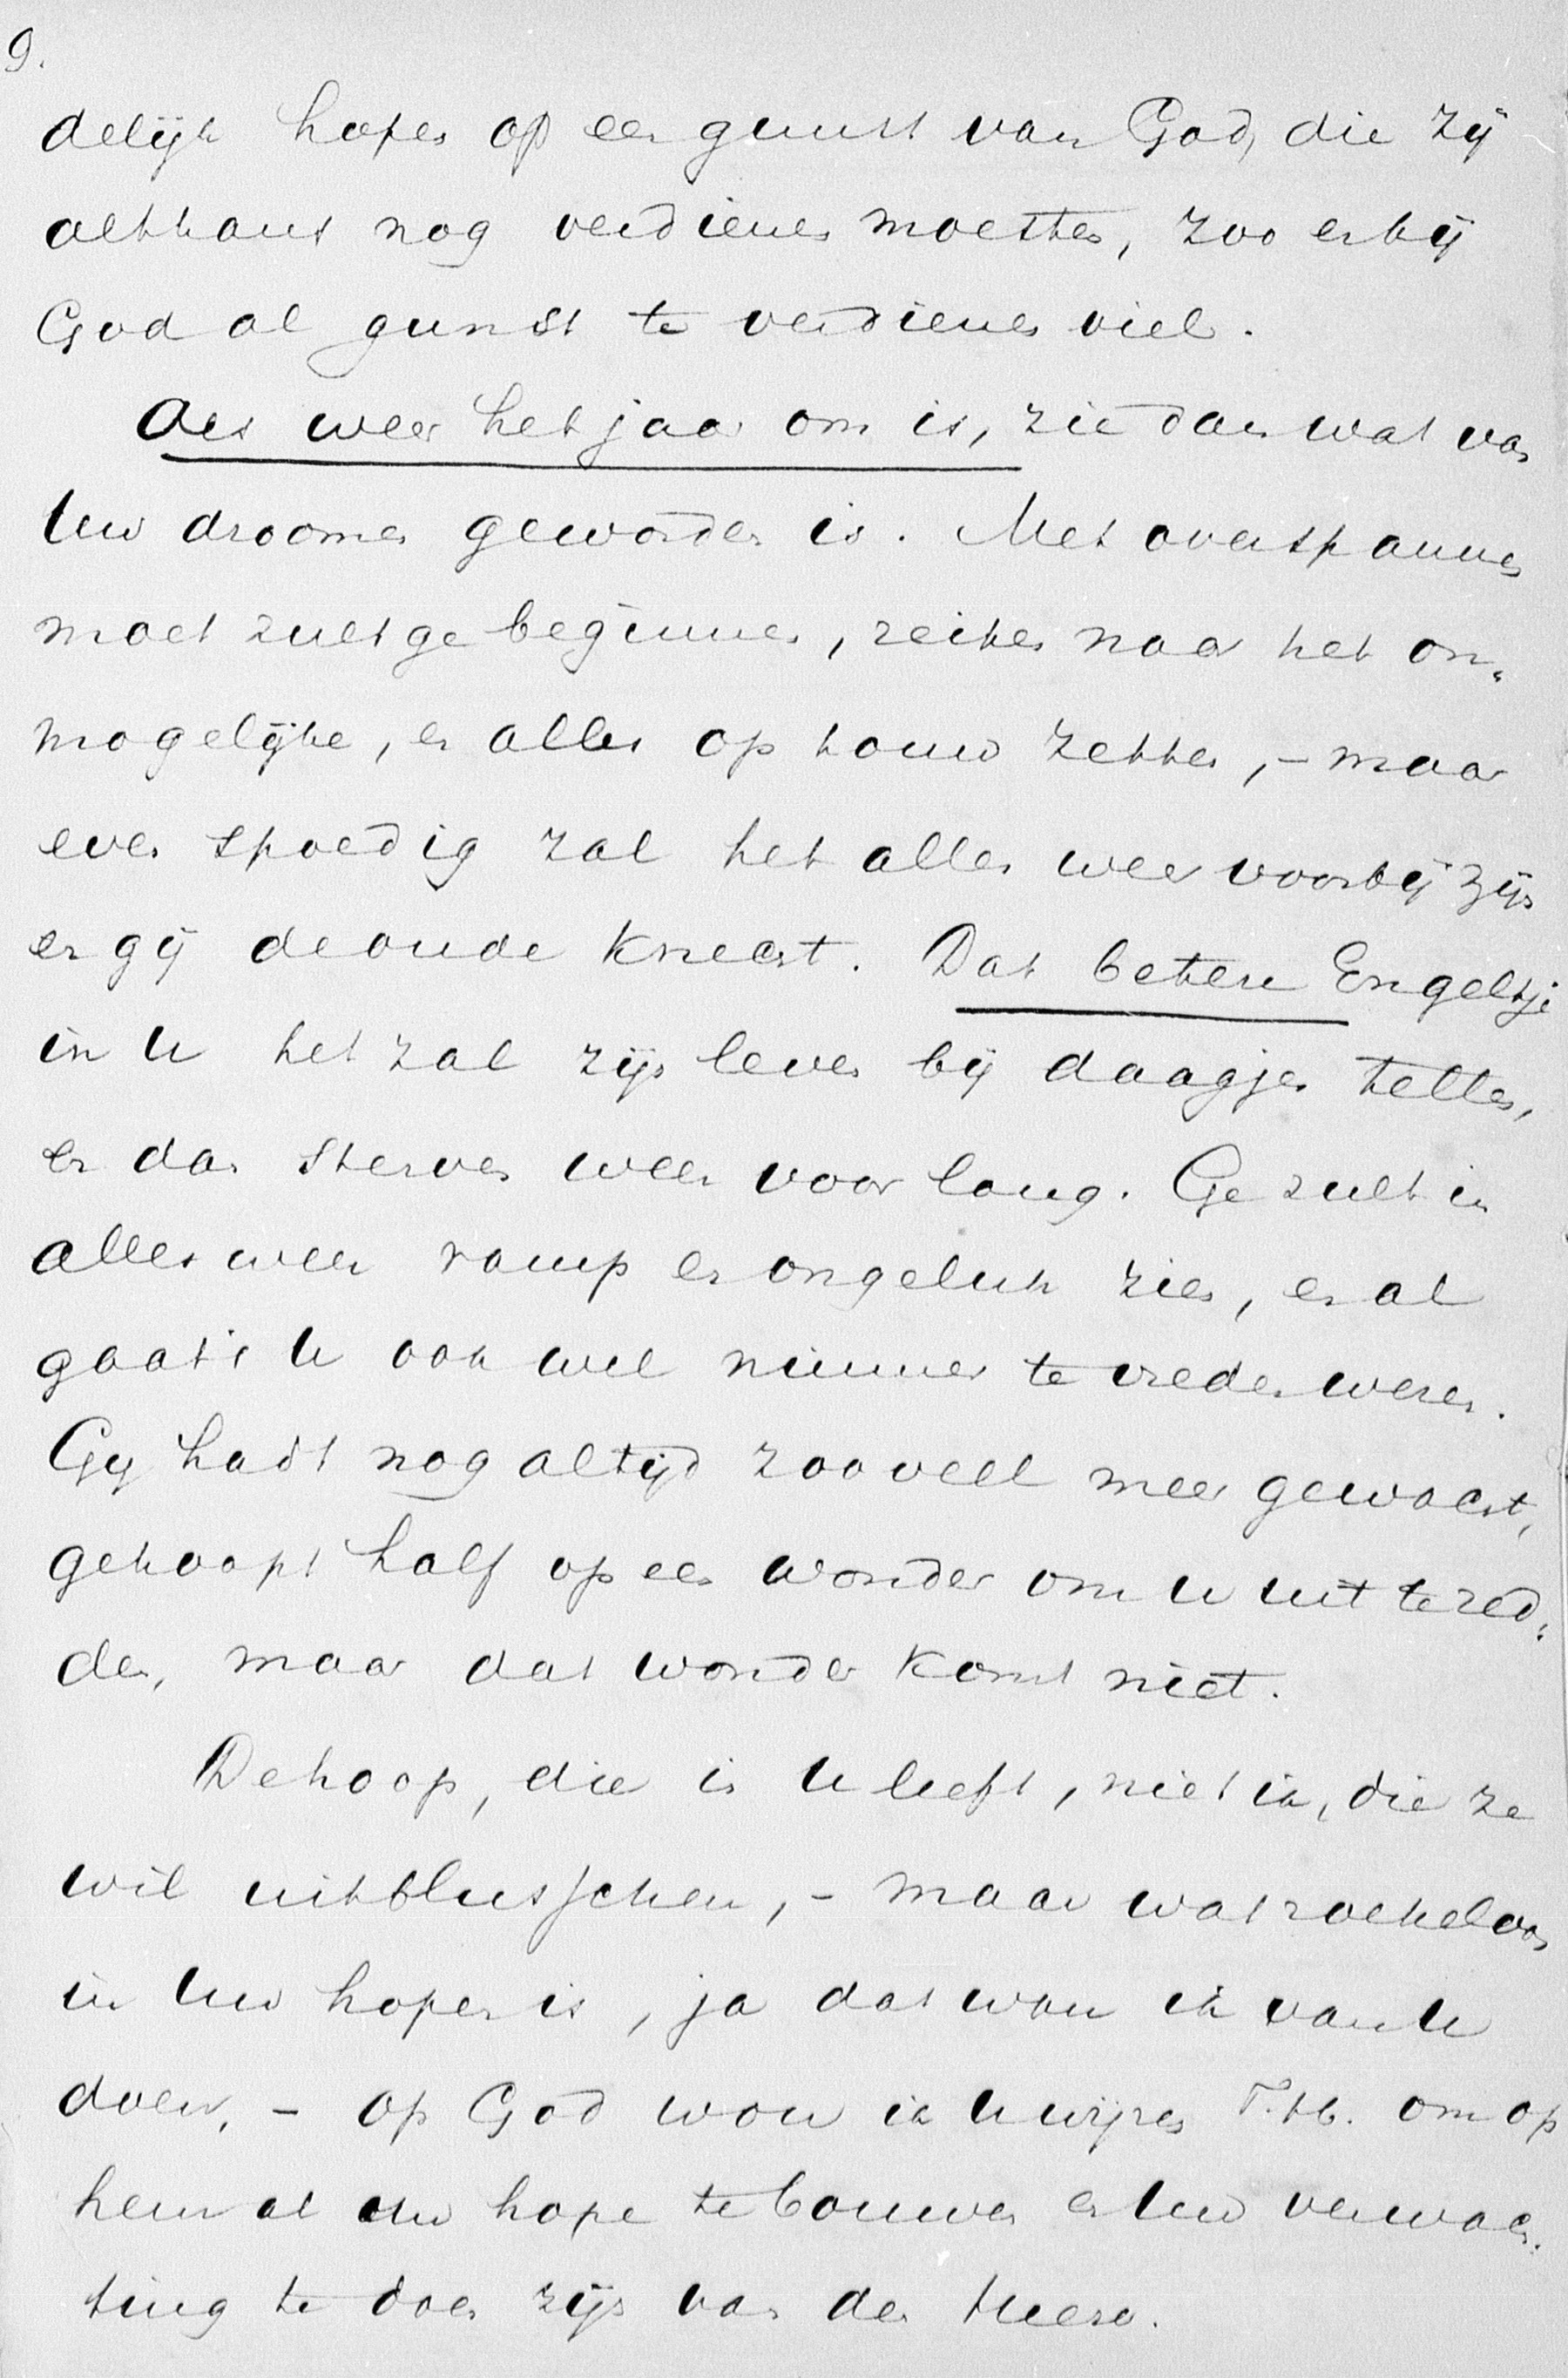 9.
delijk hopen op een gunst van God, die zij
althans nog verdienen moesten, zoo er bij
God al gunst te verdienen viel.
Als weer het jaar om is, zie dan wat van
Uw droomen geworden is. Met overspannen
moed zult ge beginnen, reiken naar het on-
mogelijke, en alles op touw zetten, - maar
even spoedig zal het alles weer voorbij zijn
en gij de oude knecht. Dat betere Engeltje
in U het zal zijn leven bij daagjes tellen,
en dan sterven weer voor lang. Ge zult in
alles weer ramp en ongeluk zien, en al
gaat 's U ook wel nimmer te vreden wezen.
Gij hadt nog altijd zooveel meer gewacht,
gehoopt half op een wonder om U uit te red-
den, maar dat wonder komt niet.
De hoop, die in U leeft, niet ik, die ze
wil uitblusschen, - maar wat roekeloos
in Uw hopen is, ja dat wou ik van U
doen, - op God wou ik U wijzen T. H. om op
hem al Uw hope te bouwen en Uw verwach-
ting te doen zijn van den Heere.